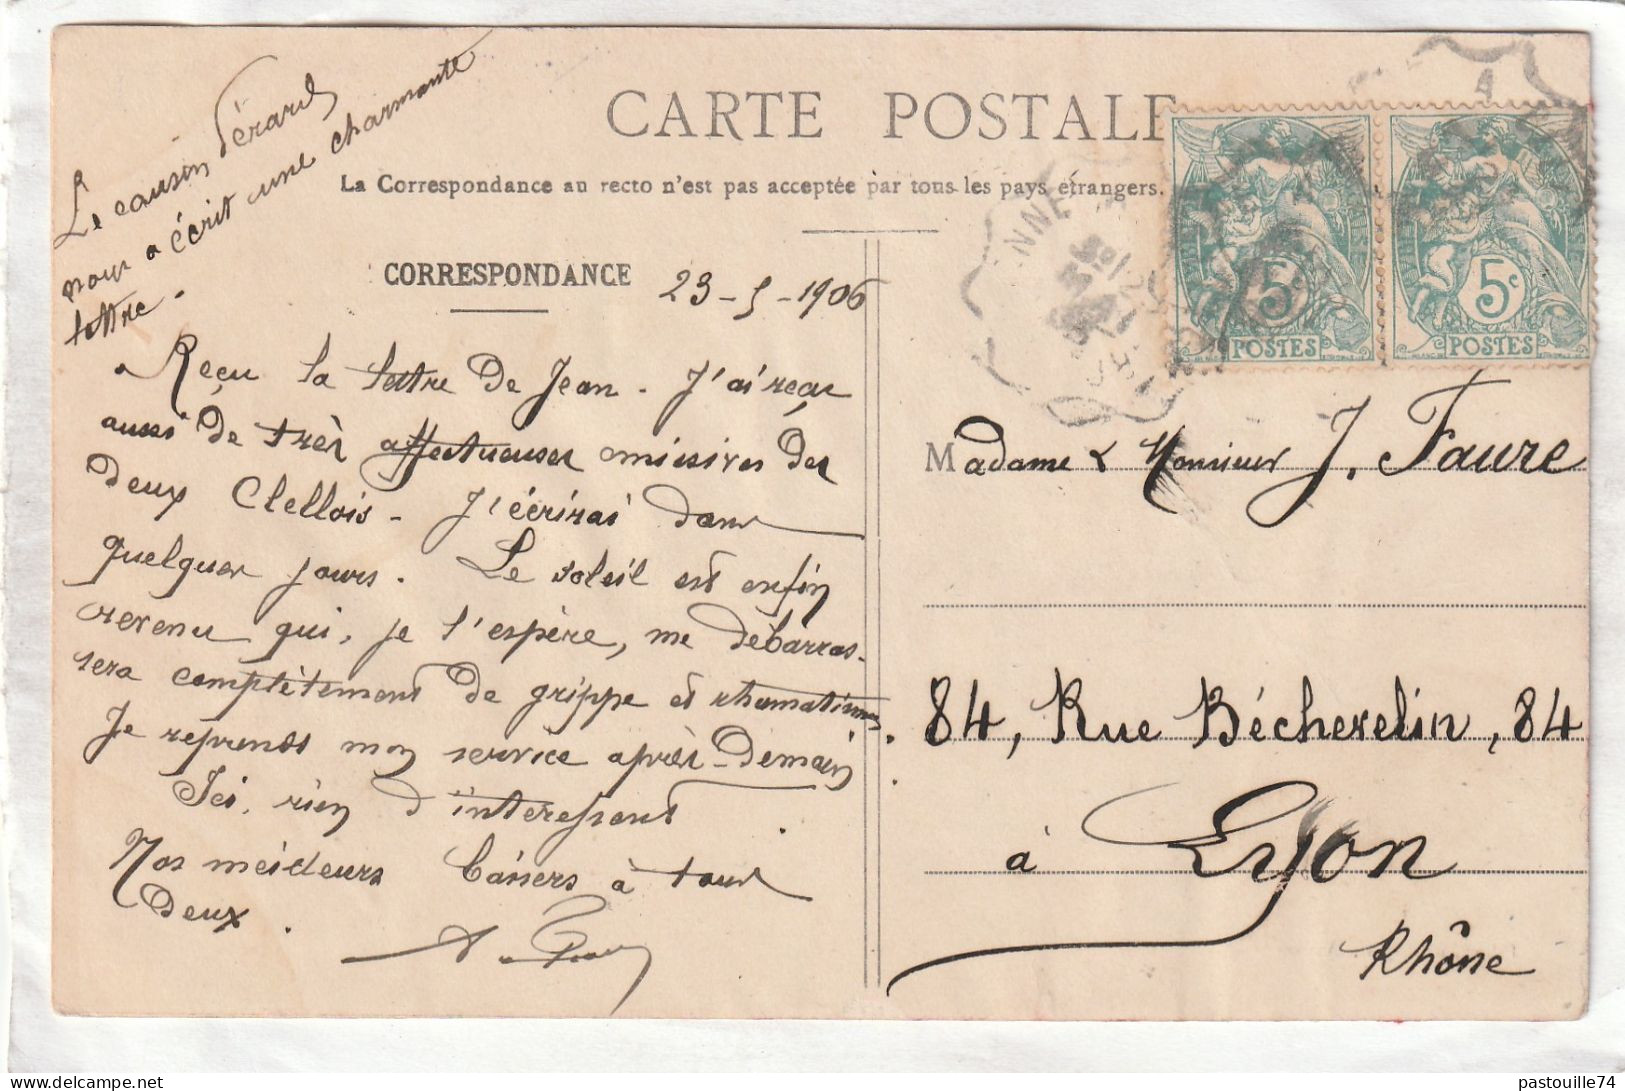 Le cousin Pérard
nous a écrit une charmante
lettre.
CARTE POSTALE
La Correspondance au recto n'est pas acceptée par tous les pays étrangers.
CORRESPONDANCE
23-5-1906
Reçu la lettre de Jean. J'ai reçu
aussi de très affectueuses missives des
deux Clellois. J'écrirai dans
quelques jours. Le soleil est enfin
revenu qui, je l'espère, me débarras-
sera complètement de grippe et rhumatismes.
Je reprends mon service après-demain.
Ici, rien d'intéressant.
Nos meilleurs baisers à tous
deux.
5c
POSTES
5c
POSTES
NNE
Madame & Monsieur J. Faure
84, Rue Bécherelin, 84
à Lyon
Rhône
pastouille74